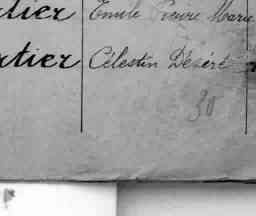 tier Emile Pierre Marie
rtier Célestin Désiré
30